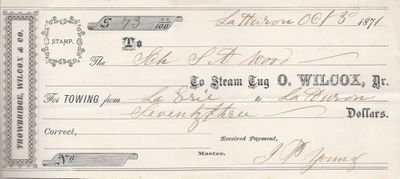 TROWBRIDGE, WILCOX & CO.
STAMP.
$ 73 11/100
La Huron Oct 3d 1871
To
The Sch S A Wood
To Steam Tug O. WILCOX, Dr.
For TOWING from La Erie to La Huron
Seventy three Dollars.
Correct,
Received Payment,
No
Master.
Young